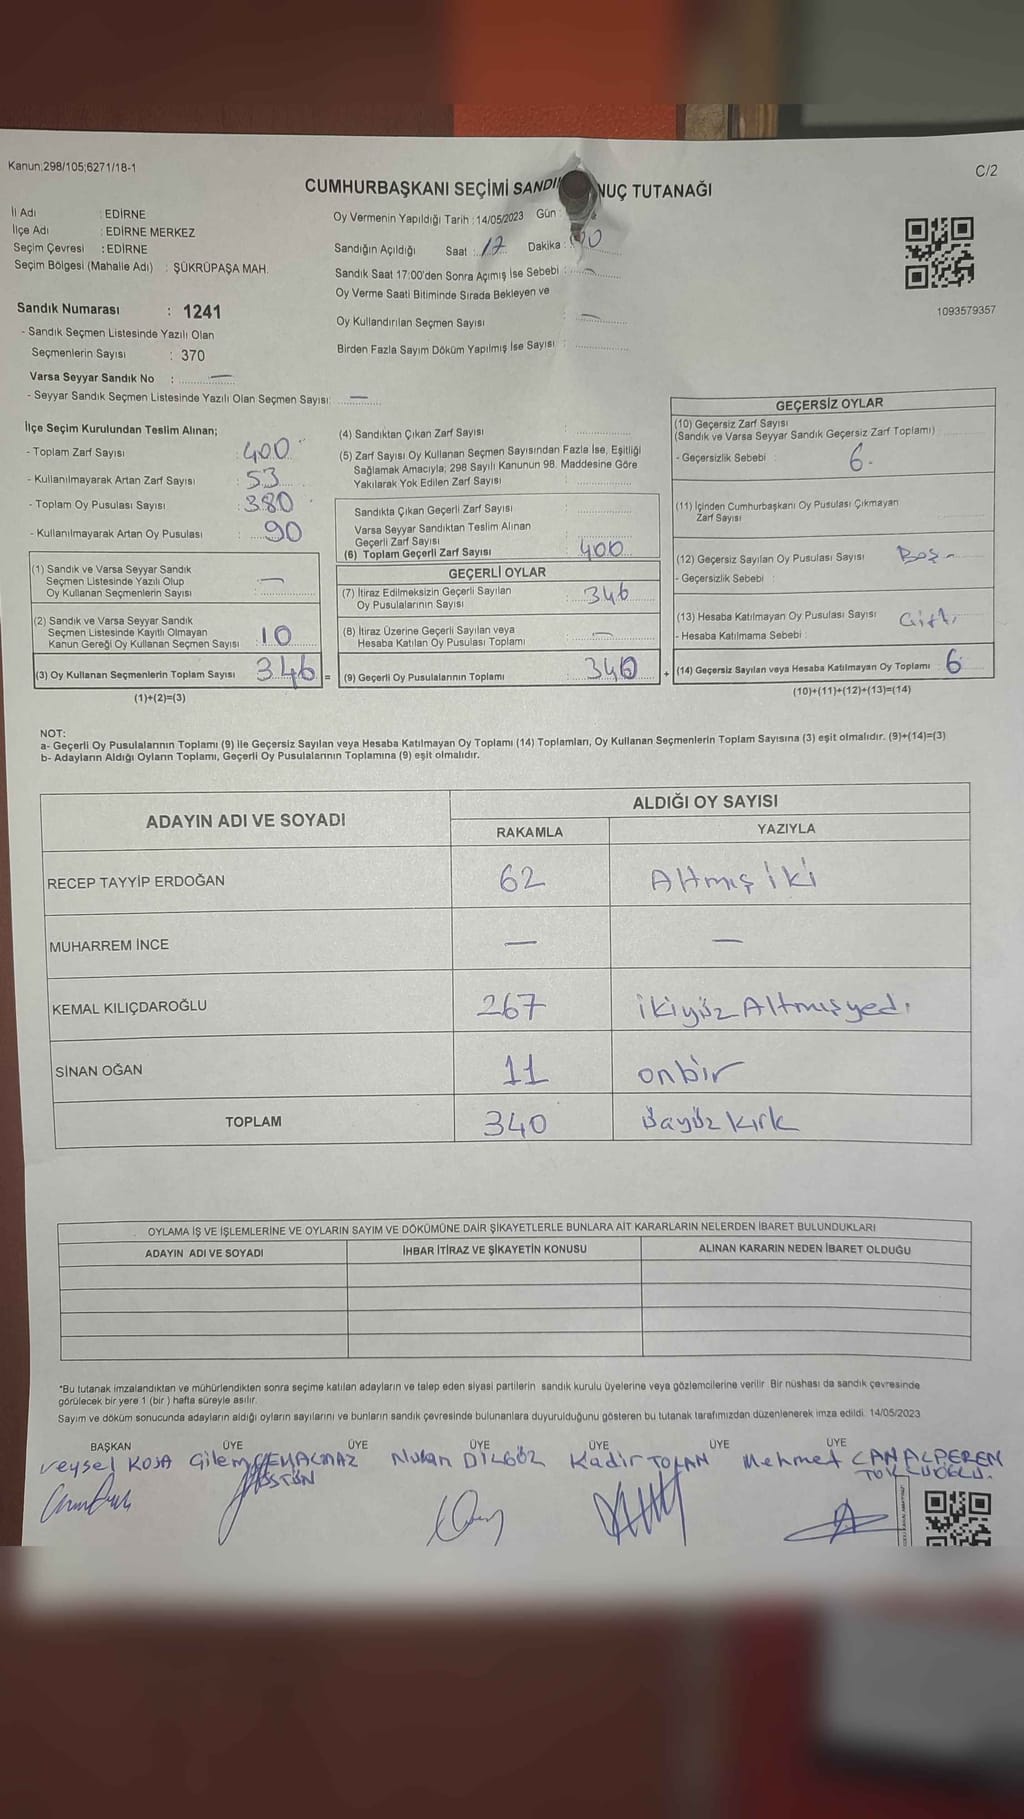 Kanun;298/105;6271/18-1
C/2
CUMHURBAŞKANI SEÇİMİ SANDI NUÇ TUTANAĞI
İl Adı : EDİRNE
İlçe Adı : EDİRNE MERKEZ
Seçim Çevresi : EDİRNE
Seçim Bölgesi (Mahalle Adı) : ŞÜKRÜPAŞA MAH.
Oy Vermenin Yapıldığı Tarih : 14/05/2023 Gün :
Sandığın Açıldığı Saat : 17 Dakika :
Sandık Saat 17:00'den Sonra Açımış İse Sebebi : —
Oy Verme Saati Bitiminde Sırada Bekleyen ve
Oy Kullandırılan Seçmen Sayısı : —
Birden Fazla Sayım Döküm Yapılmış İse Sayısı :
1093579357
Sandık Numarası : 1241
- Sandık Seçmen Listesinde Yazılı Olan
Seçmenlerin Sayısı : 370
Varsa Seyyar Sandık No : —
- Seyyar Sandık Seçmen Listesinde Yazılı Olan Seçmen Sayısı: —
İlçe Seçim Kurulundan Teslim Alınan;
- Toplam Zarf Sayısı : 400
- Kullanılmayarak Artan Zarf Sayısı : 53
- Toplam Oy Pusulası Sayısı : 380
- Kullanılmayarak Artan Oy Pusulası : 90
(1) Sandık ve Varsa Seyyar Sandık
Seçmen Listesinde Yazılı Olup
Oy Kullanan Seçmenlerin Sayısı : —
(2) Sandık ve Varsa Seyyar Sandık
Seçmen Listesinde Kayıtlı Olmayan
Kanun Gereği Oy Kullanan Seçmen Sayısı : 10
(3) Oy Kullanan Seçmenlerin Toplam Sayısı 346 =
(1)+(2)=(3)
(4) Sandıktan Çıkan Zarf Sayısı :
(5) Zarf Sayısı Oy Kullanan Seçmen Sayısından Fazla İse, Eşitliği
Sağlamak Amacıyla; 298 Sayılı Kanunun 98. Maddesine Göre
Yakılarak Yok Edilen Zarf Sayısı :
Sandıkta Çıkan Geçerli Zarf Sayısı :
Varsa Seyyar Sandıktan Teslim Alınan
Geçerli Zarf Sayısı :
(6) Toplam Geçerli Zarf Sayısı : 400
GEÇERLİ OYLAR
(7) İtiraz Edilmeksizin Geçerli Sayılan
Oy Pusulalarının Sayısı : 346
(8) İtiraz Üzerine Geçerli Sayılan veya
Hesaba Katılan Oy Pusulası Toplamı : —
(9) Geçerli Oy Pusulalarının Toplamı : 340 +
GEÇERSİZ OYLAR
(10) Geçersiz Zarf Sayısı
(Sandık ve Varsa Seyyar Sandık Geçersiz Zarf Toplamı)
- Geçersizlik Sebebi : 6.
(11) İçinden Cumhurbaşkanı Oy Pusulası Çıkmayan
Zarf Sayısı :
(12) Geçersiz Sayılan Oy Pusulası Sayısı : Boş -
- Geçersizlik Sebebi :
(13) Hesaba Katılmayan Oy Pusulası Sayısı :
- Hesaba Katılmama Sebebi :
(14) Geçersiz Sayılan veya Hesaba Katılmayan Oy Toplamı : 6
(10)+(11)+(12)+(13)=(14)
NOT:
a- Geçerli Oy Pusulalarının Toplamı (9) ile Geçersiz Sayılan veya Hesaba Katılmayan Oy Toplamı (14) Toplamları, Oy Kullanan Seçmenlerin Toplam Sayısına (3) eşit olmalıdır. (9)+(14)=(3)
b- Adayların Aldığı Oyların Toplamı, Geçerli Oy Pusulalarının Toplamına (9) eşit olmalıdır.
ADAYIN ADI VE SOYADI
ALDIĞI OY SAYISI
RAKAMLA YAZIYLA
RECEP TAYYİP ERDOĞAN 62 Altmış iki
MUHARREM İNCE — —
KEMAL KILIÇDAROĞLU 267 ikiyüz Altmışyedi
SİNAN OĞAN 11 onbir
TOPLAM 340 üçyüz kırk
OYLAMA İŞ VE İŞLEMLERİNE VE OYLARIN SAYIM VE DÖKÜMÜNE DAİR ŞİKAYETLERLE BUNLARA AİT KARARLARIN NELERDEN İBARET BULUNDUKLARI
ADAYIN ADI VE SOYADI İHBAR İTİRAZ VE ŞİKAYETİN KONUSU ALINAN KARARIN NEDEN İBARET OLDUĞU
*Bu tutanak imzalandıktan ve mühürlendikten sonra seçime katılan adayların ve talep eden siyasi partilerin sandık kurulu üyelerine veya gözlemcilerine verilir. Bir nüshası da sandık çevresinde
görülecek bir yere 1 (bir) hafta süreyle asılır.
Sayım ve döküm sonucunda adayların aldığı oyların sayılarını ve bunların sandık çevresinde bulunanlara duyurulduğunu gösteren bu tutanak tarafımızdan düzenlenerek imza edildi. 14/05/2023
BAŞKAN ÜYE ÜYE ÜYE ÜYE ÜYE ÜYE
Veysel KOJA Nukan DİLGÖZ Kadir TOLAN Mehmet CAN ALPEREN